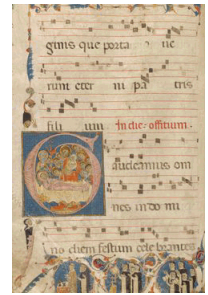 ginis que porta ue
runt eter ni pa tris
fili um In die offitium.
Gaudeamus om
nes in do mi
no diem festum cele brantes